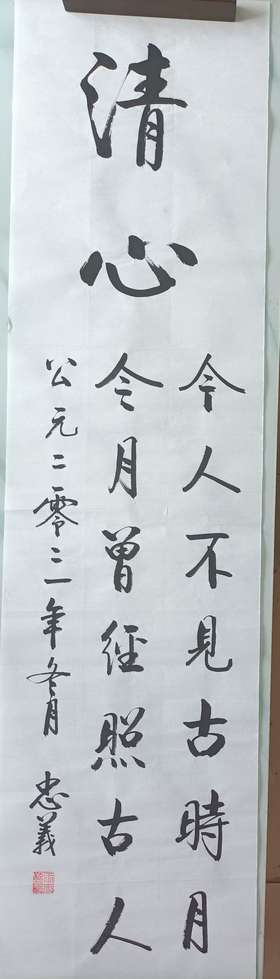 清心
今人不見古時月
今月曾經照古人
公元二零二一年冬月 忠義